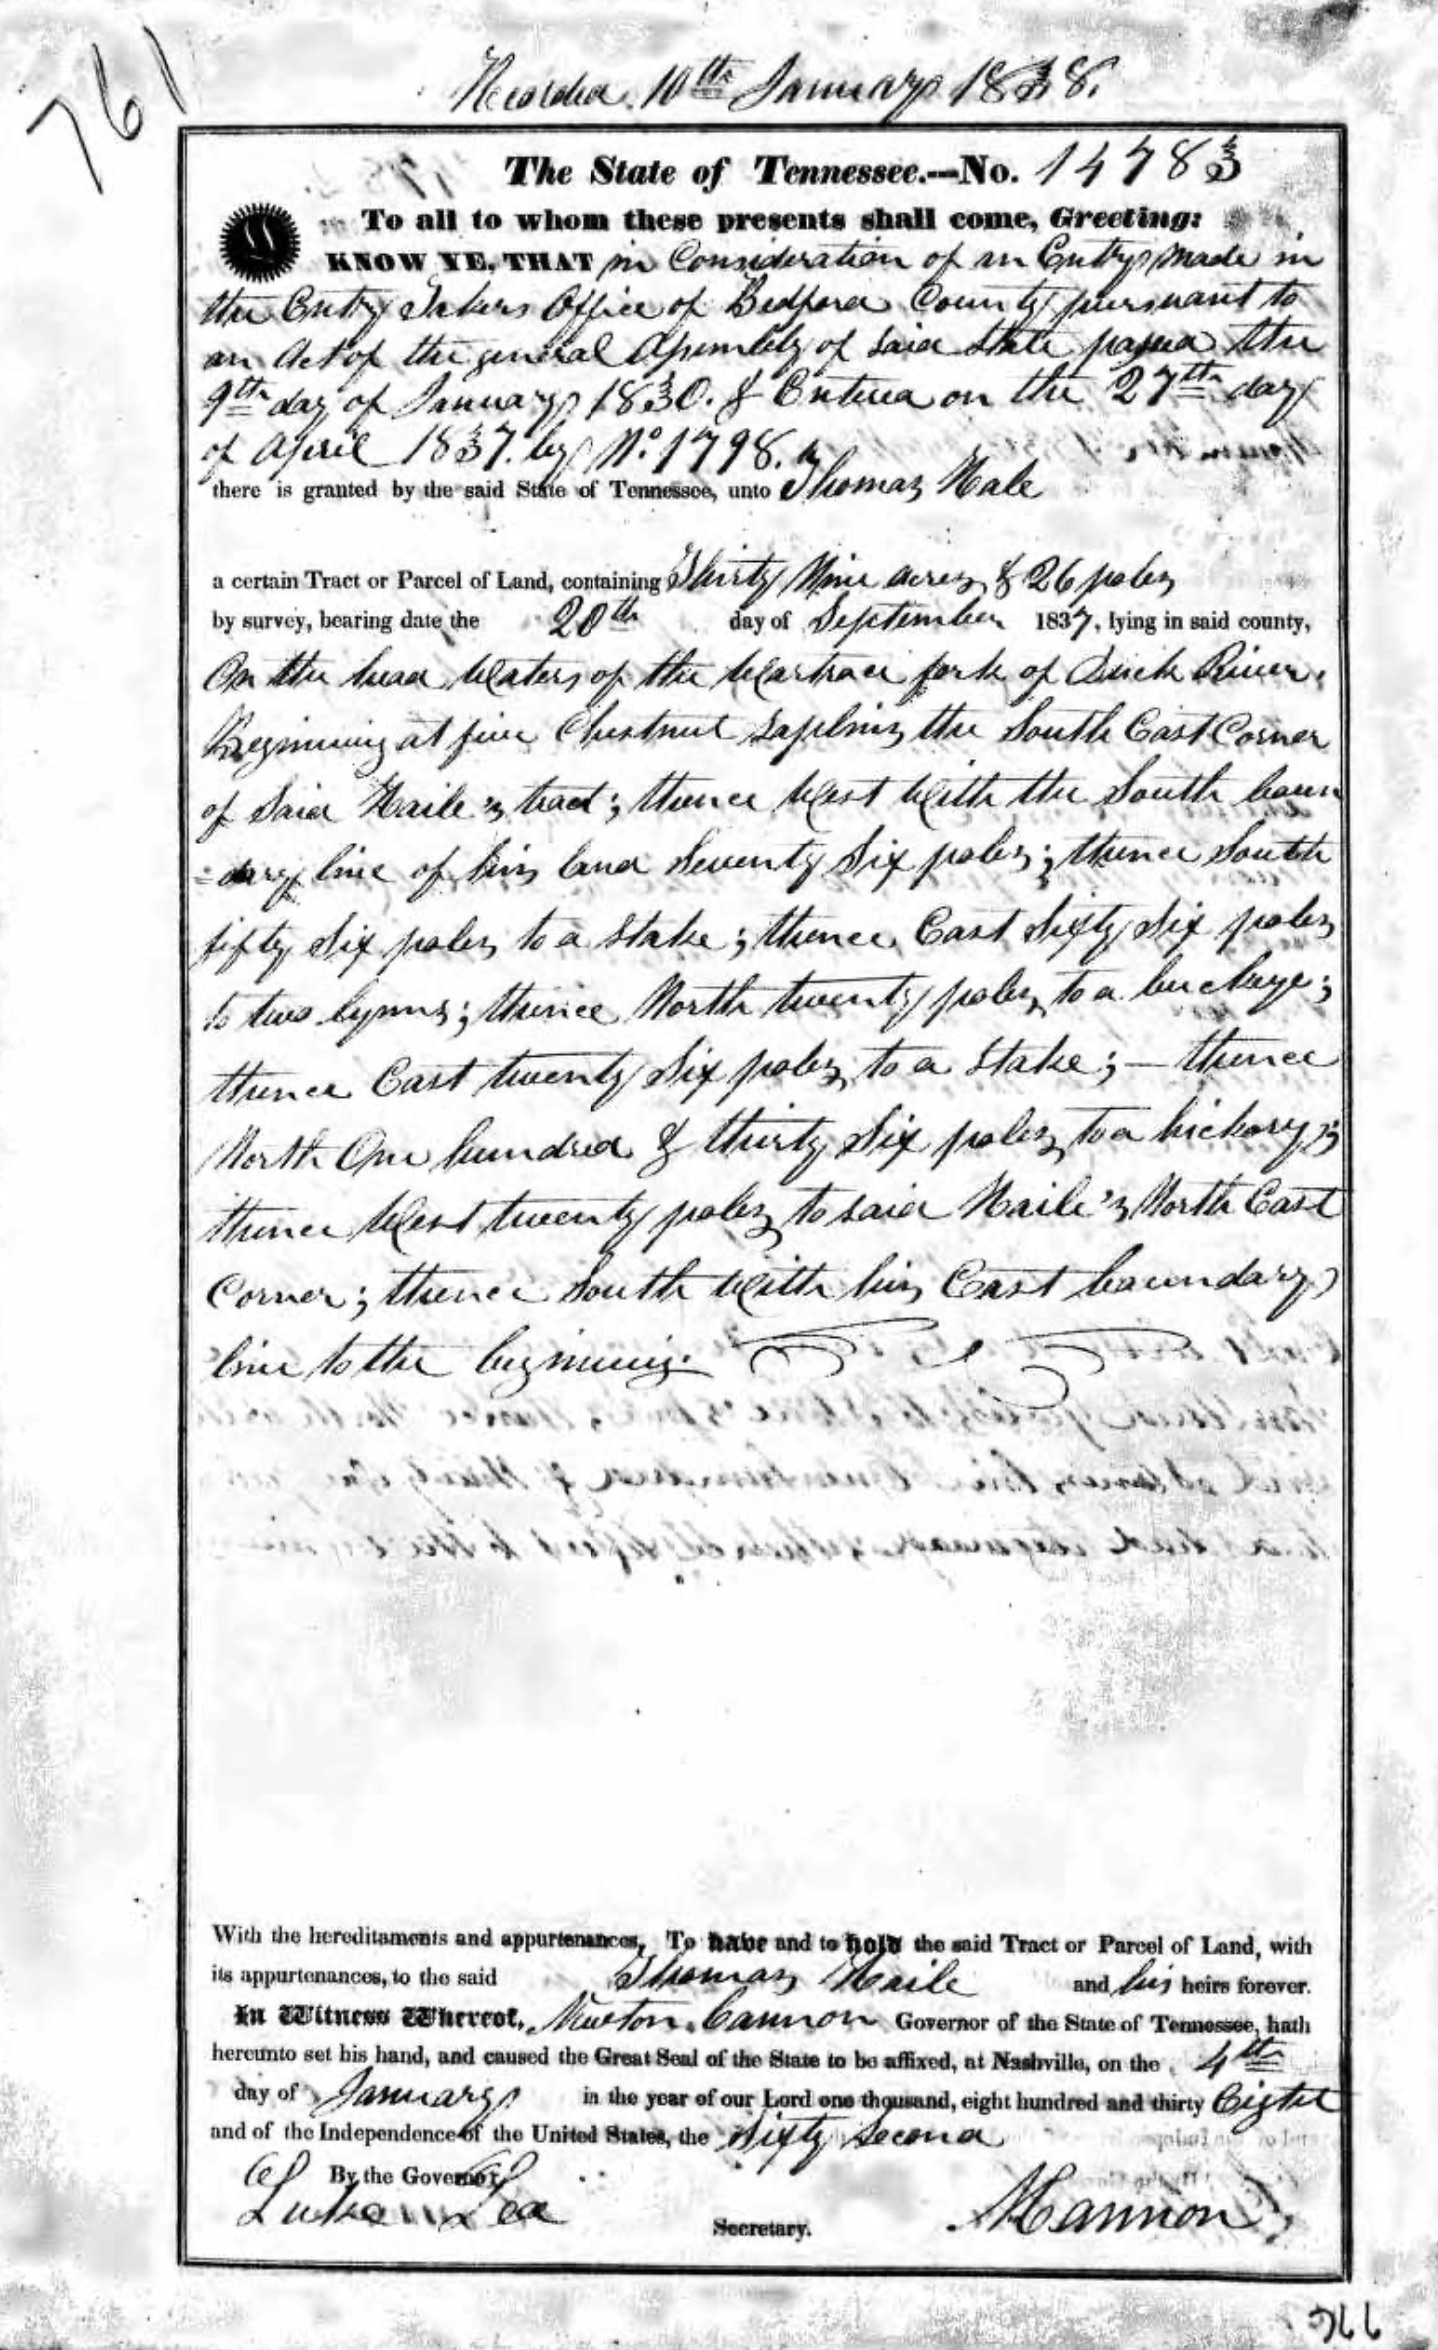 761
Recorded 10th January 1838.
The State of Tennessee.—No. 14783
To all to whom these presents shall come, Greeting:
KNOW YE, THAT in Consideration of an Entry made in
the Entry Takers Office of Bedford County pursuant to
an Act of the general Assembly of said State passed the
9th day of January 1830. & Entered on the 27th day
of April 1837. by No. 1798.
there is granted by the said State of Tennessee, unto Thomas Hale
a certain Tract or Parcel of Land, containing Thirty Nine acres & 26 poles
by survey, bearing date the 20th day of September 1837, lying in said county,
On the head Waters of the Wartrace fork of Duck River.
Beginning at five Chestnut saplins the South East Corner
of Said Haile's tract; thence West With the South boun
=dary line of his land Seventy Six poles; thence South
fifty Six poles to a Stake; thence East Sixty Six poles
to two lynns; thence North twenty poles to a buckeye;
thence East twenty Six poles to a Stake; — thence
North One hundred & thirty Six poles to a hickory;
thence West twenty poles to said Haile's North East
Corner; thence South With his East boundary
line to the beginning.
With the hereditaments and appurtenances, To have and to hold the said Tract or Parcel of Land, with
its appurtenances, to the said Thomas Haile and his heirs forever.
In Witness Whereof, Newton Cannon Governor of the State of Tennessee, hath
hereunto set his hand, and caused the Great Seal of the State to be affixed, at Nashville, on the 4th
day of January in the year of our Lord one thousand, eight hundred and thirty Eight
and of the Independence of the United States, the Sixty Second
By the Governor,
Luke Lea Secretary. N Cannon